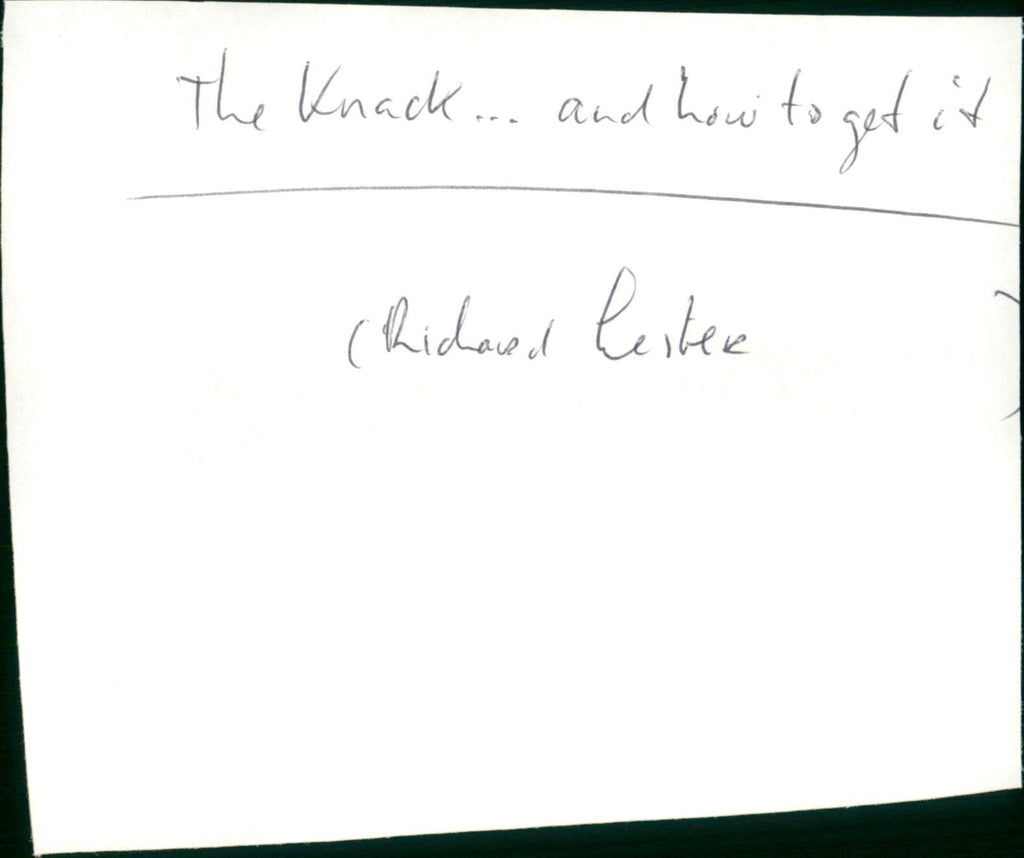 The Knack... and how to get it
(Richard Lester
)